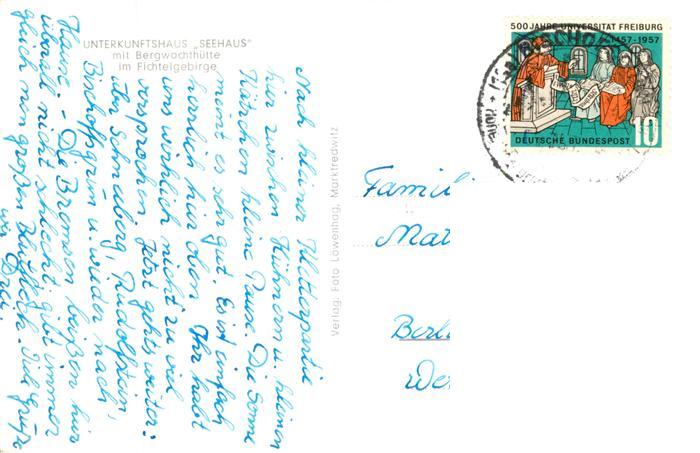 UNTERKUNFTSHAUS „SEEHAUS"
mit Bergwachthütte
im Fichtelgebirge
Nach kleiner Kletterpartie
hier zwischen Hühnern u. kleinen
Kätzchen kleine Pause. Die Sonne
meint es sehr gut. Es ist einfach
herrlich hier oben. Ihr habt
uns wirklich nicht zu viel
versprochen. Jetzt gehts weiter.
üb. Schneeberg, Rudolfstein,
Bischoffsgrün u. wieder nach
Hause. – Die Bremsen beißen hier
überall nicht schlecht, gibt immer
gleich mon großen Blutfleck. Viel Grüße
wir Drei.
Verlag: Foto Löwenhag, Marktredwitz
500 JAHRE UNIVERSITÄT FREIBURG
1457-1957
10
DEUTSCHE BUNDESPOST
Famil
Mat
Berl
We